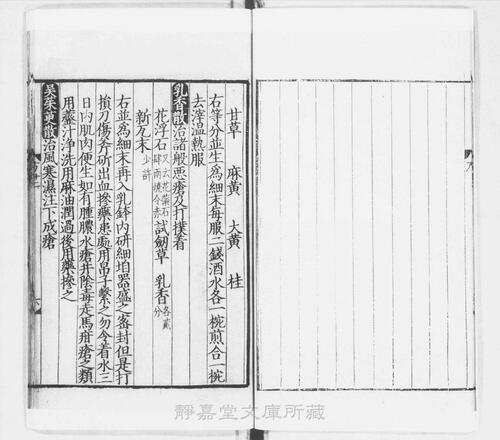 甘草 麻黄 大黄 桂
右等分並生爲細末每服二錢酒水各一椀煎合一椀
去滓温熱服
乳香散治諸般悪瘡及打撲着
花浮石又云花蘂石肆兩燒令赤 試劔草 乳香各貳分
新瓦末少許
右並爲細末再入乳鉢内研細甆器盛之密封但是打
損刀傷斧斫出血摻藥患處用帛子繋之勿令着水三
日内肌肉便生如有腫膿水瘡并隂毒走馬疳瘡之類
用虀汁浄洗用麻油潤過後用藥摻之
吳茱萸散治風寒濕注下成瘡
六
靜嘉堂文庫所藏